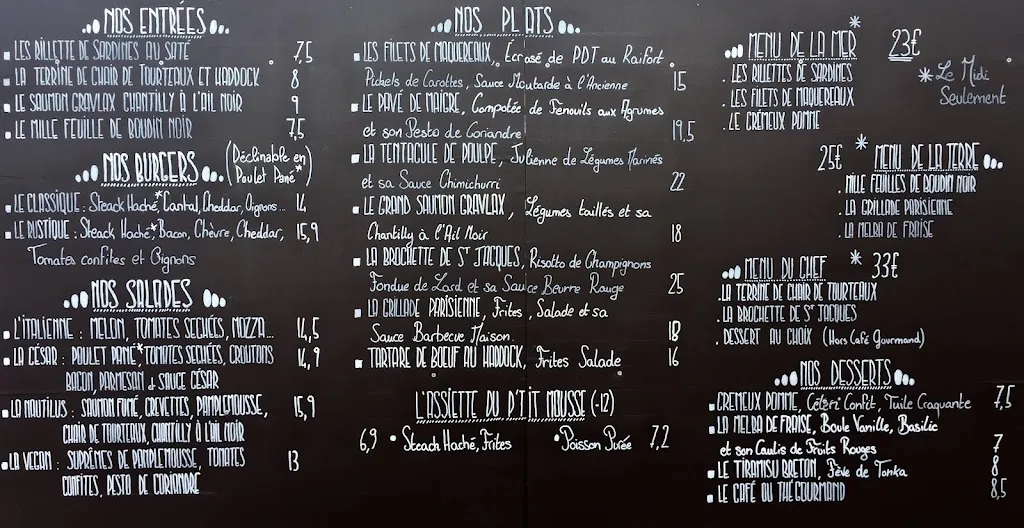 NOS ENTRÉES
LES RILLETTE DE SARDINES AU SATÉ 7,5
LA TERRINE DE CHAIR DE TOURTEAUX ET HADDOCK 8
LE SAUMON GRAVLAX CHANTILLY À L'AIL NOIR 9
LE MILLE FEUILLE DE BOUDIN NOIR 7,5
NOS BURGERS (Déclinable en
Poulet Pané*)
LE CLASSIQUE : Steack Haché*, Cantal, Cheddar, Oignons... 14
LE RUSTIQUE : Steack Haché*, Bacon, Chèvre, Cheddar, 15,9
Tomates confites et Oignons
NOS SALADES
L'ITALIENNE : MELON, TOMATES SECHÉES, MOZZA... 14,5
LA CÉSAR : POULET PANÉ*, TOMATES SECHÉES, CROUTONS 14,9
BACON, PARMESAN et SAUCE CÉSAR
LA NAUTILUS : SAUMON FUMÉ, CREVETTES, PAMPLEMOUSSE, 15,9
CHAIR DE TOURTEAUX, CHANTILLY À L'AIL NOIR
LA VEGAN : SUPRÊMES DE PAMPLEMOUSSE, TOMATES 13
CONFITES, PESTO DE CORIANDRE
NOS PLATS
LES FILETS DE MAQUEREAUX, Écrasé de PDT au Raifort
Pickels de Carottes, Sauce Moutarde à l'Ancienne 15
LE PAVÉ DE MAIGRE, Compotée de Fenouils aux Agrumes
et son Pesto de Coriandre 19,5
LA TENTACULE DE POULPE, Julienne de Légumes Marinés
et sa Sauce Chimichurri 22
LE GRAND SAUMON GRAVLAX, Légumes taillés et sa
Chantilly à l'Ail Noir 18
LA BROCHETTE DE ST JACQUES, Risotto de Champignons
Fondue de Lard et sa Sauce Beurre Rouge 25
LA GRILLADE PARISIENNE, Frites, Salade et sa
Sauce Barbecue Maison. 18
TARTARE DE BŒUF AU HADDOCK, Frites Salade 16
L'ASSIETTE DU P'TIT MOUSSE (-12)
6,9 • Steack Haché, Frites • Poisson Purée 7,2
MENU DE LA MER * 23€
. LES RILLETTES DE SARDINES
. LES FILETS DE MAQUEREAUX
. LE CRÉMEUX POMME
* Le Midi
Seulement
25€ * MENU DE LA TERRE
. MILLE FEUILLES DE BOUDIN NOIR
. LA GRILLADE PARISIENNE
. LA MELBA DE FRAISE
MENU DU CHEF * 33€
. LA TERRINE DE CHAIR DE TOURTEAUX
. LA BROCHETTE DE ST JACQUES
. DESSERT AU CHOIX (Hors Café Gourmand)
NOS DESSERTS
CREMEUX POMME, Céleri Confit, Tuile Craquante 7,5
LA MELBA DE FRAISE, Boule Vanille, Basilic
et son Coulis de Fruits Rouges 7
LE TIRAMISU BRETON, Fève de Tonka 8
LE CAFÉ OU THÉ GOURMAND 8,5